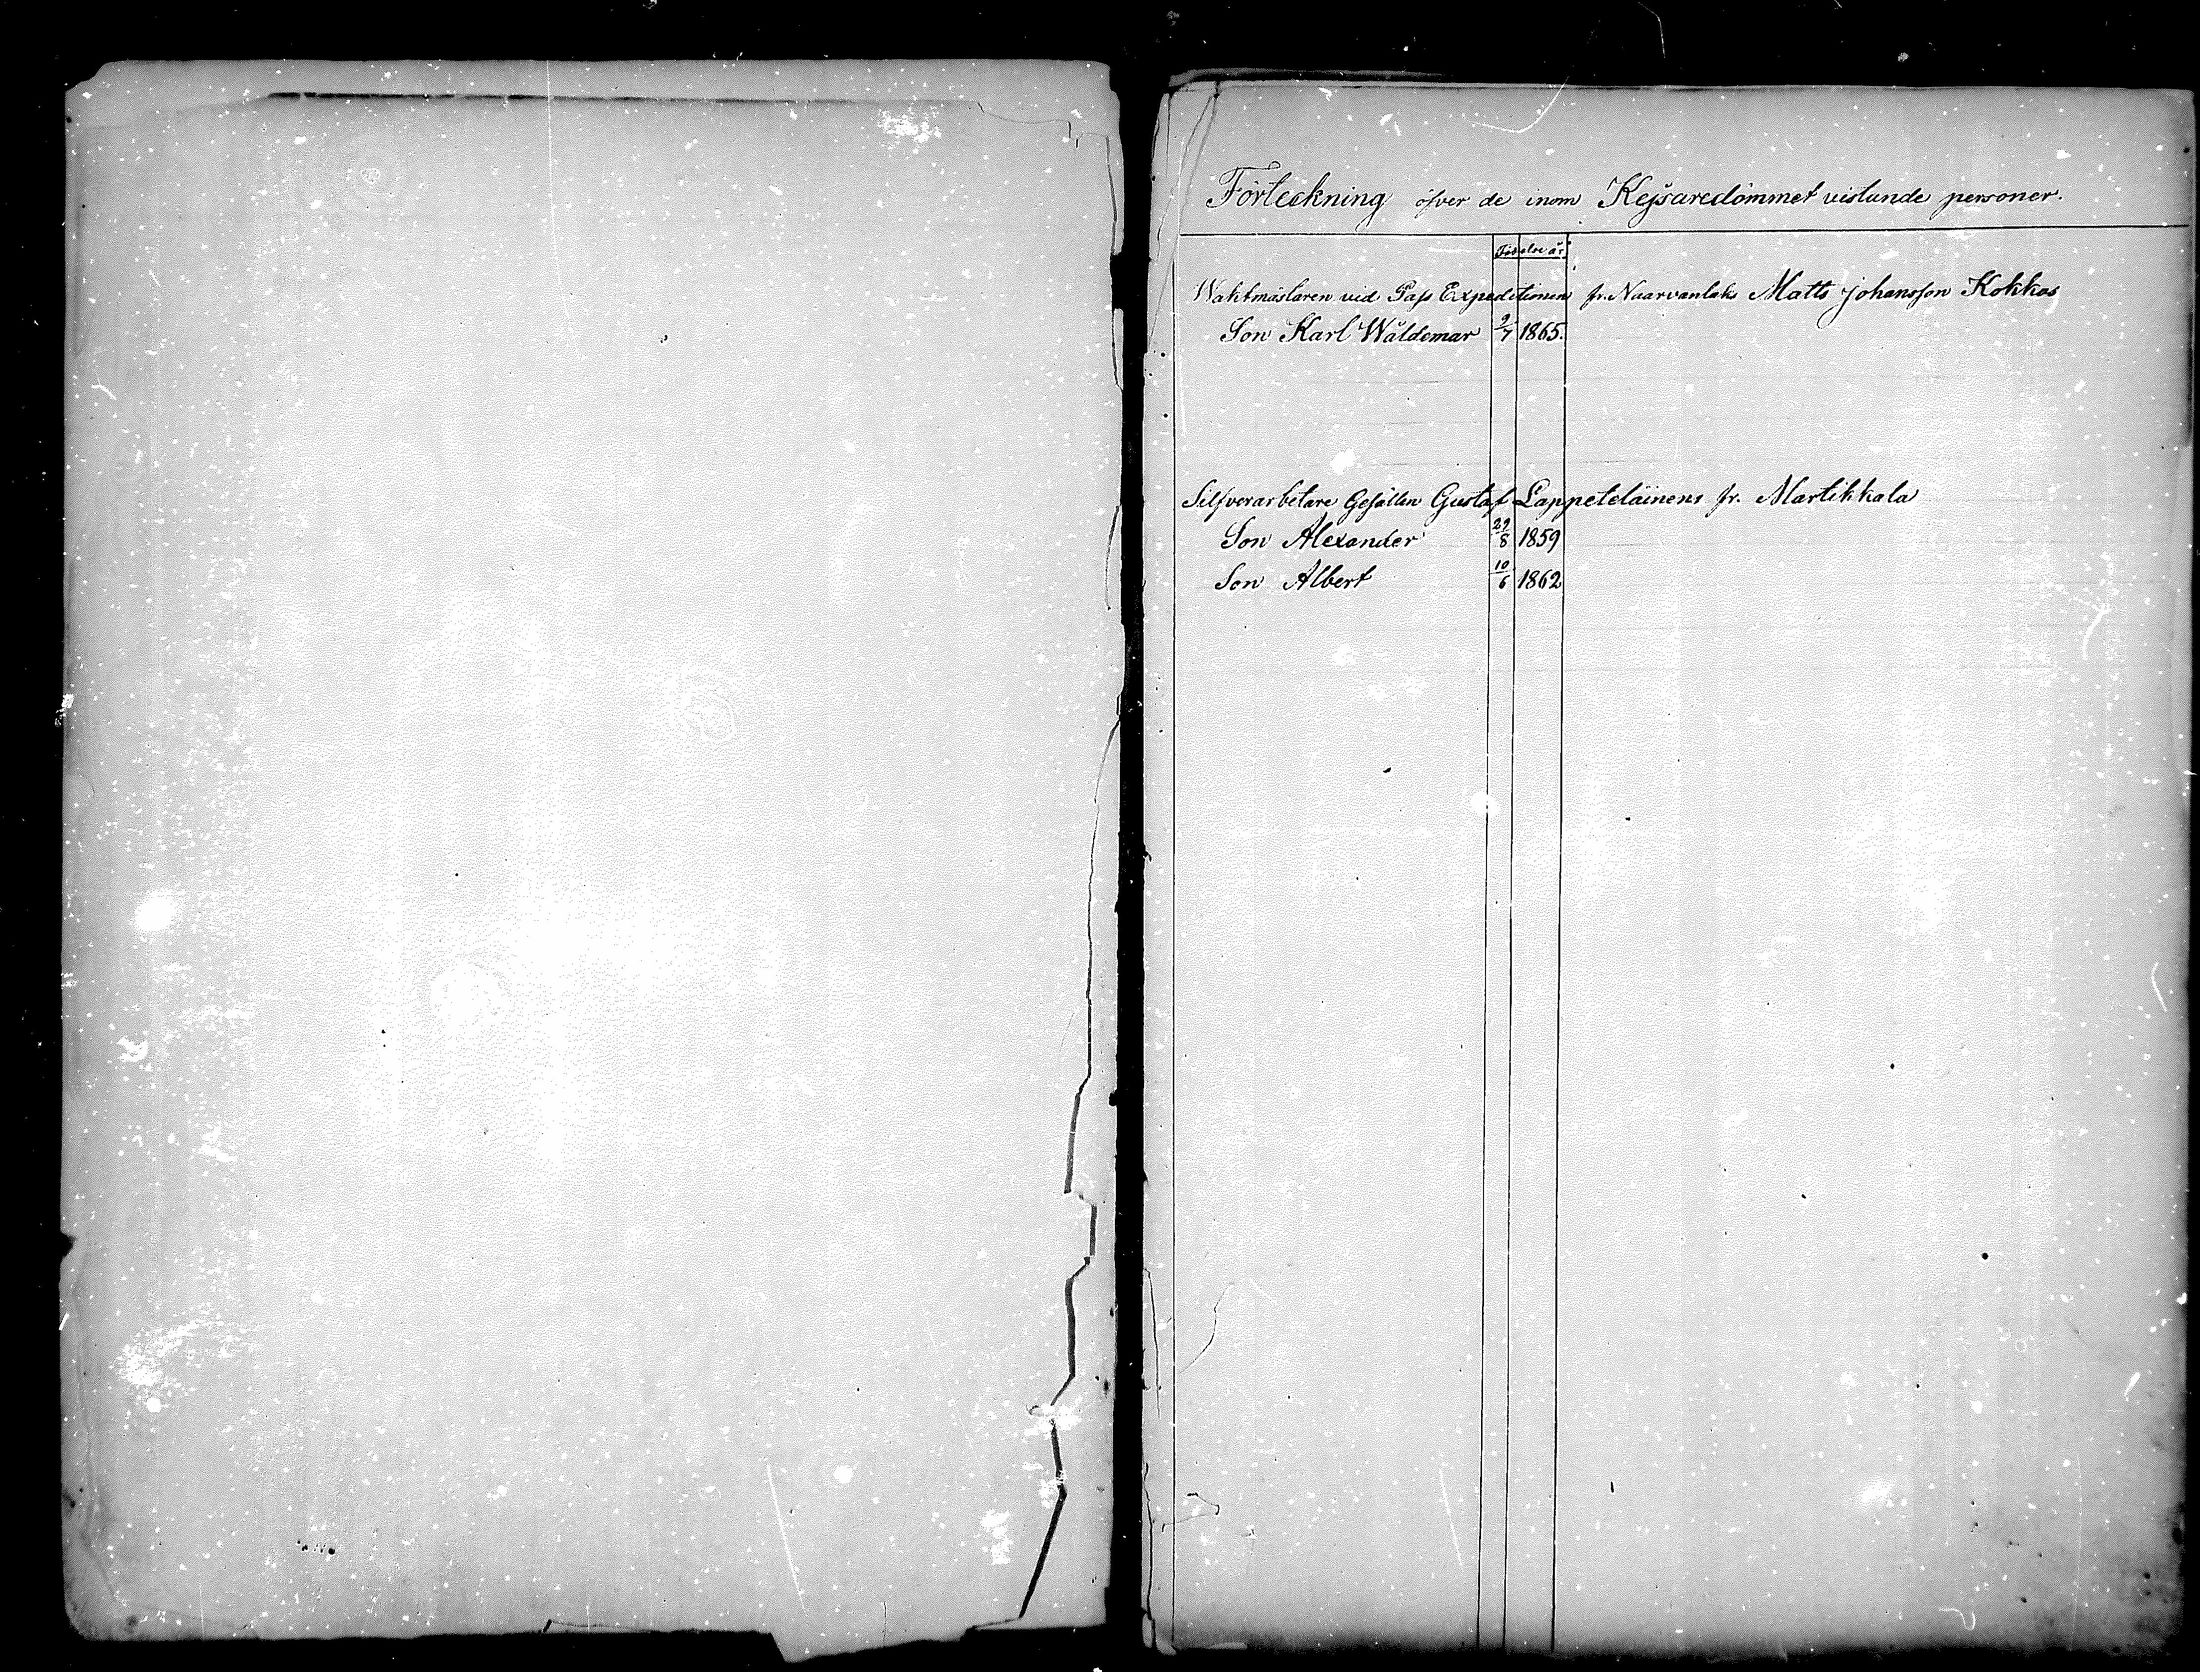 Förteckning öfver de inom Kejsaredömmet vistande personer.
Födelse år.
Wahtmästaren vid Pass Expeditionen fr. Naarvanlaks Matts Johansson Kokkos
Son Karl Waldemar 9/7 1865.
Silfverarbetare Gesällen Gustaf Lappeteläinens fr. Martikkala
Son Alexander 29/8 1859
Son Albert 10/6 1862